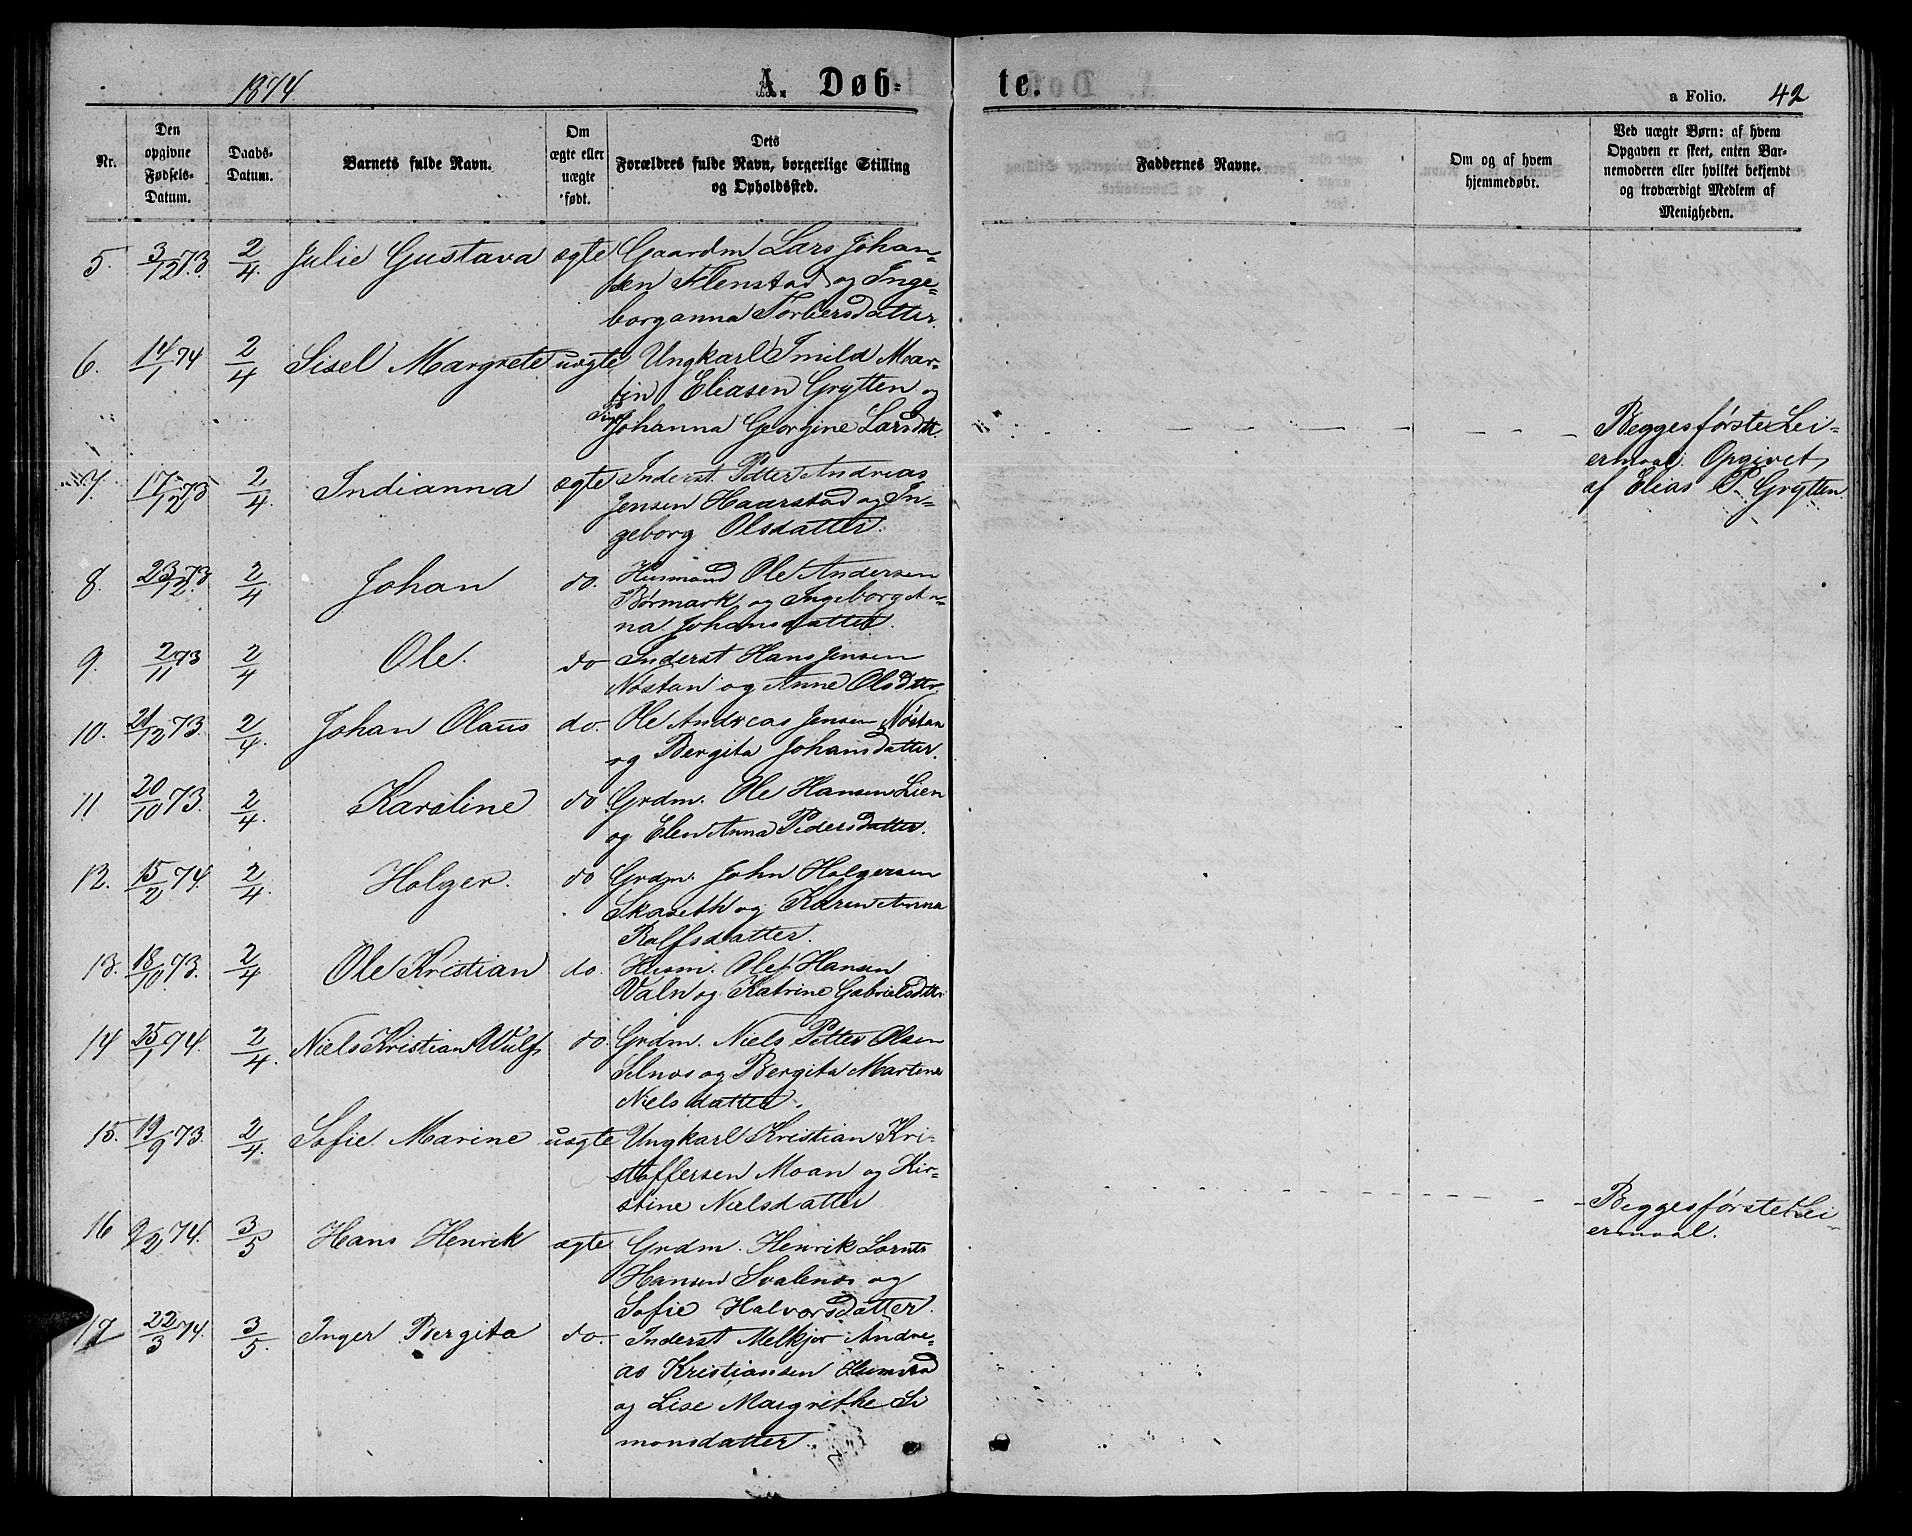 1874.
A. Døb-
te.
a Folio. 42
Nr.
Den
opgivne
Fødsels-
Datum.
Daabs-
Datum.
Barnets fulde Navn.
Om
ægte eller
uægte
født.
Dets
Forældres fulde Navn, borgerlige Stilling
og Opholdssted.
Faddernes Navne.
Om og af hvem
hjemmedøbt.
Ved uægte Børn: af hvem
Opgaven er skeet, enten Bar-
nemoderen eller hvilket bekjendt
og troværdigt Medlem af
Menigheden.
5. 3/12 73 2/4. Julie Gustava ægte Gaardm Lars Johan-
sen Flenstad og Inge-
borganna Torbersdatter.
6. 14/1 74 2/4 Sisel Margrete uægte Ungkarl Imild Mar-
tin Eliasen Grytten og
Pige Johanna Georgine Larsdtr.
Begges første Lei-
ermaal. Opgivet
af Elias P. Grytten
7. 17/12 73 2/4. Indianna ægte Inderst. Petter Andreas
Jensen Haarstad og In-
geborg Olsdatter.
8. 23/12 73. 2/4 Johan do. Husmand Ole Andersen
Børmark og Ingeborg An-
na Johansdatter.
9. 2/11 73 2/4 Ole. do Inderst Hans Jensen
Nøstan og Anne Olsdtr.
10. 21/12 73. 2/4. Johan Olaus do. Ole Andreas Jensen Nøstan
og Bergita Johansdatter.
11 20/10 73. 2/4. Karoline do Grdm. Ole Hansen Lien
og Elen Anna Pedersdatter.
12. 15/2 74. 2/4. Holger. do Grdm. John Holgersen
Skaseth og Karen Anna
Ralfsdatter.
13. 18/10 73. 2/4 Ole Kristian do. Husm. Ole Hansen
Valn og Katrine Gabrielsdtr.
14 25/1 74. 2/4. Niels Kristian Wulf do. Grdm. Niels Petter Olsen
Selnæs og Bergita Martena
Nielsdatter.
15. 19/9 73. 2/4. Sofie Marine uægte Ungkarl Kristian Kri-
stoffersen Moan og Kir-
stine Nielsdatter
Begges første Lei-
ermaal.
16 9/2 74. 3/5 Hans Henrik ægte Grdm. Henrik Lornts
Hansen Svalenæs og
Sofie Halvorsdatter.
17 22/3 74. 3/5. Inger Bergita do. Inderst Melkjor Andre-
as Kristiansen Humstad
og Lise Margrethe Si
monsdatter.